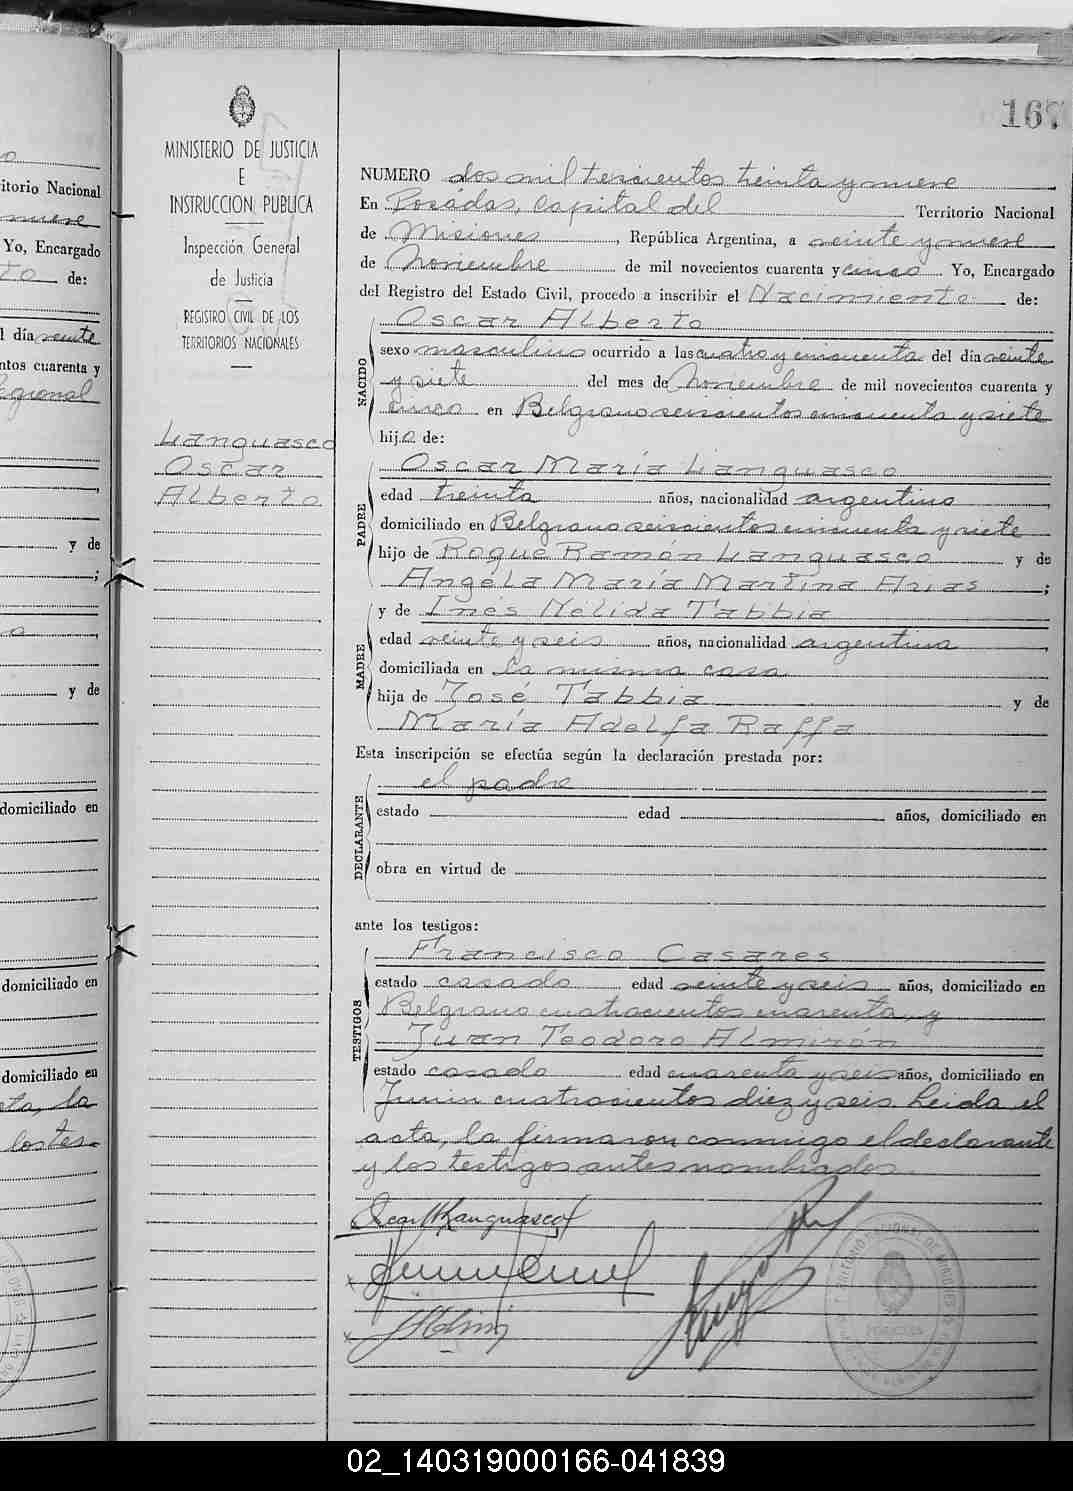 o
itorio Nacional
nueve
Yo, Encargado
to de:
l día veinte
ntos cuarenta y
egional
y de
;
o
y de
domiciliado en
domiciliado en
domiciliado en
eta, la
los tes-
MINISTERIO DE JUSTICIA
E
INSTRUCCION PUBLICA
Inspección General
de Justicia
REGISTRO CIVIL DE LOS
TERRITORIOS NACIONALES
Languasco
Oscar
Alberto
167
NUMERO dos mil trescientos treinta y nueve
En Posádas, Capital del Territorio Nacional
de Misiones, República Argentina, a veinte y nueve
de Noviembre de mil novecientos cuarenta y cinco. Yo, Encargado
del Registro del Estado Civil, procedo a inscribir el Nacimiento de:
Oscar Alberto
NACIDO
sexo masculino ocurrido a las cuatro y cincuenta del día veinte
y siete del mes de Noviembre de mil novecientos cuarenta y
cinco en Belgrano seiscientos cincuenta y siete
hijo de:
PADRE
Oscar María Languasco
edad treinta años, nacionalidad argentino
domiciliado en Belgrano seiscientos cincuenta y siete
hijo de Roque Ramón Languasco y de
Angéla María Martina Arias;
MADRE
y de Inés Nélida Tabbia
edad veinte y seis años, nacionalidad argentina
domiciliada en la misma casa
hija de José Tabbia y de
María Adelfa Raffa
Esta inscripción se efectúa según la declaración prestada por:
DECLARANTE
el padre
estado edad años, domiciliado en
obra en virtud de
ante los testigos:
TESTIGOS
Francisco Casares
estado casado edad veinte y seis años, domiciliado en
Belgrano cuatrocientos cuarenta, y
Juan Teodoro Almirón
estado casado edad cuarenta y seis años, domiciliado en
Junin cuatrocientos diez y seis. Leida el
acta, la firmaron conmigo el declarante
y los testigos antes nombrados.
Oscar Languasco
02_140319000166-041839